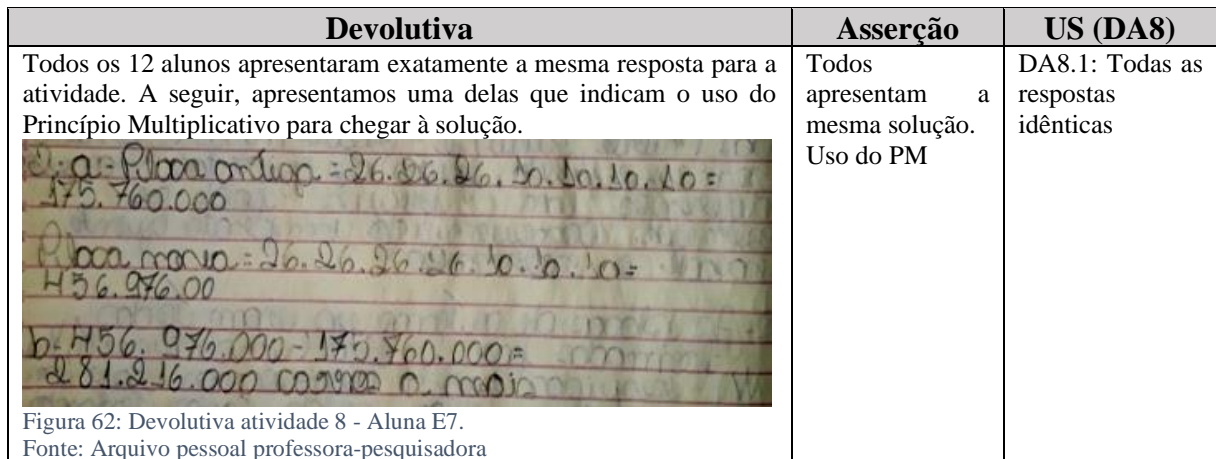 Devolutiva
Asserção
US (DA8)
Todos os 12 alunos apresentaram exatamente a mesma resposta para a
atividade. A seguir, apresentamos uma delas que indicam o uso do
Princípio Multiplicativo para chegar à solução.
2: a- Placa antiga = 26.26.26.10.10.10.10 =
175.760.000
Placa nova = 26.26.26.26.10.10.10 =
456.976.00
b- 456.976.000 - 175.760.000 =
281.216.000 carros a mais
Figura 62: Devolutiva atividade 8 - Aluna E7.
Fonte: Arquivo pessoal professora-pesquisadora
Todos
apresentam a
mesma solução.
Uso do PM
DA8.1: Todas as
respostas
idênticas